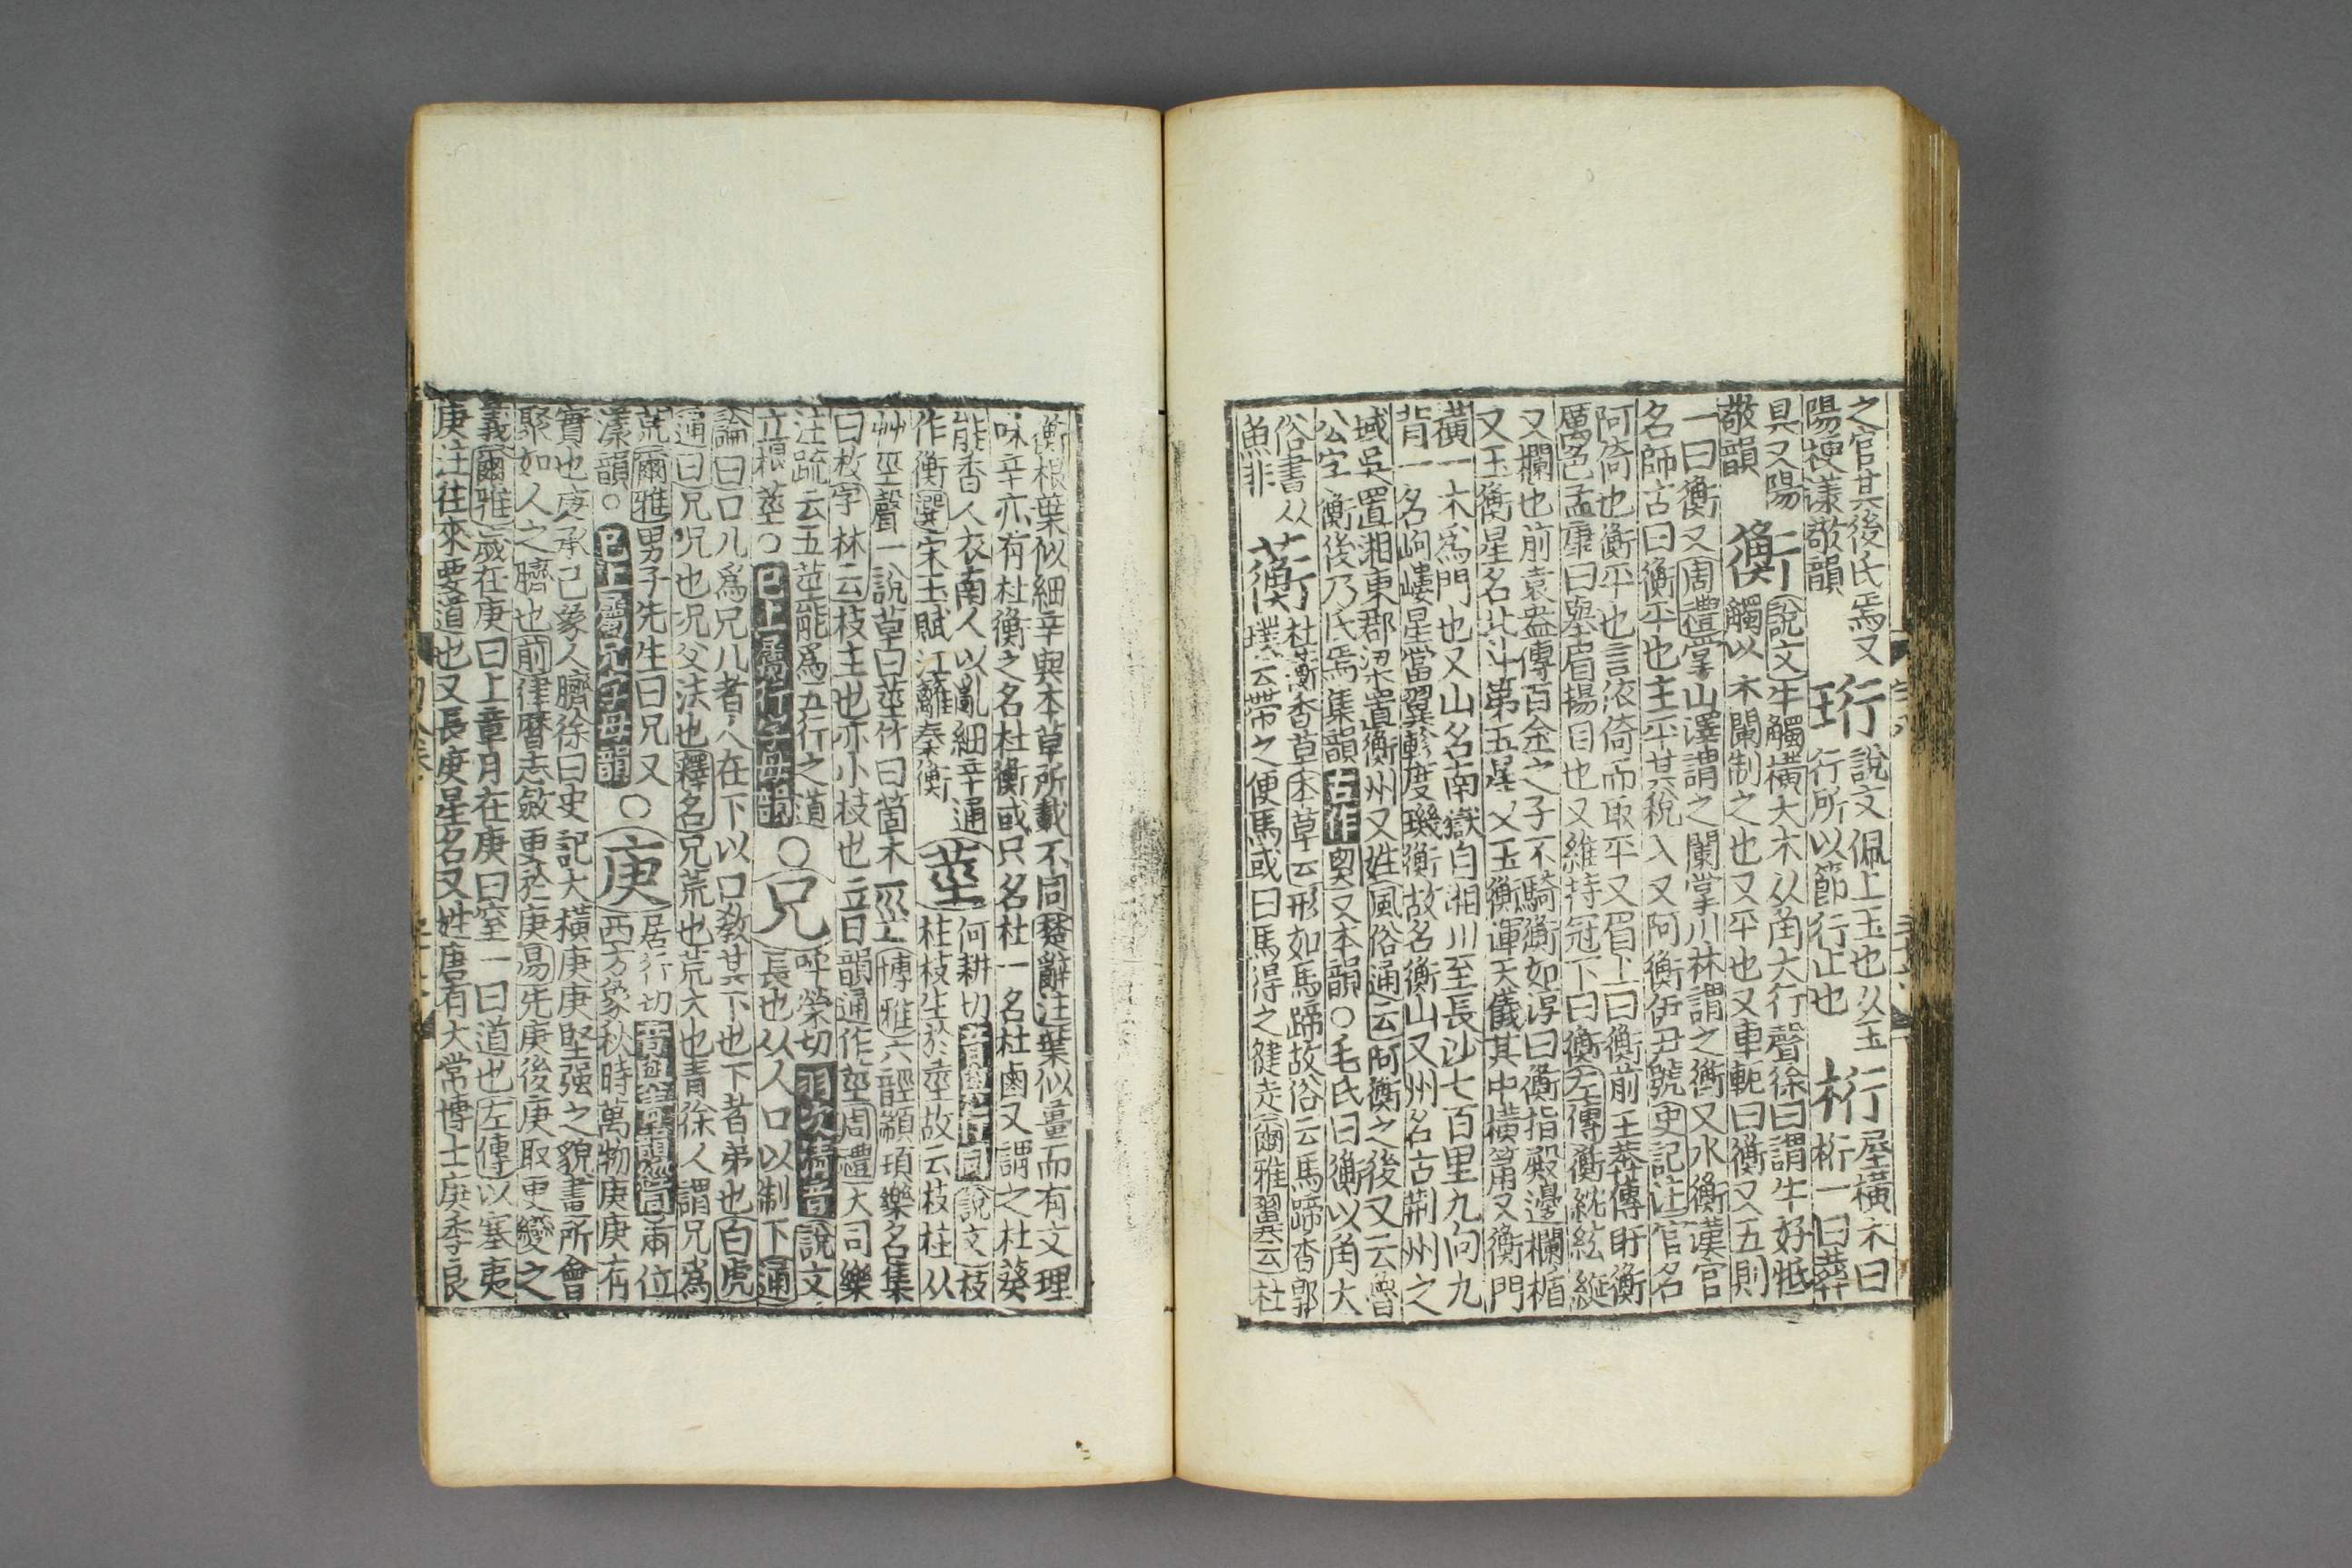 之官其後氏焉又
陽梗漾敬韻
珩
說文佩上玉也从玉
行所以節行止也
桁
屋橫木曰
桁一曰葬
具又陽
敬韻
衡
說文牛觸橫大木从角大行聲徐曰謂牛好牴
觸以木闌制之也又平也又車軛曰衡又五則
一曰衡又周禮掌山澤謂之闌掌川林謂之衡又水衡漢官
名師古曰衡平也主平其稅入又阿衡伊尹號史記注官名
阿倚也衡平也言依倚而取平又眉上曰衡前王莽傳盱衡
厲色孟康曰舉眉揚目也又維持冠下曰衡左傳衡紞紘綖
又欄也前袁盎傳百金之子不騎衡如淳曰衡指殿邊欄楯
又玉衡星名北斗第五星又玉衡運天儀其中橫筩又衡門
橫一木爲門也又山名南嶽自湘川至長沙七百里九向九
背一名岣嶁星當翼軫度璣衡故名衡山又州名古荆州之
域吳置湘東郡梁置衡州又姓風俗通云阿衡之後又云魯
公字衡後乃氏焉集韻古作𢔖又本韻○毛氏曰衡以角大
俗書从
魚非
蘅
杜蘅香草本草云形如馬蹄故俗云馬蹄香郭
璞云帶之便馬或曰馬得之健走爾雅翼云杜
衡根葉似細辛與本草所載不同楚辭注葉似薑而有文理
味辛亦有杜衡之名杜衡或只名杜一名杜鹵又謂之杜葵
能香人衣南人以亂細辛通
作衡選宋玉賦江蘺秦衡
莖
何耕切音與行同說文枝
柱枝生於莖故云枝柱从
艸巠聲一說草曰莖竹曰箇木曰
曰枚字林云枝主也亦小枝也
巠
博雅六𧫣顓頊樂名集
韻通作莖周禮大司樂
注疏云五莖能爲五行之道
立根莖○已上屬行字母韻
○兄
呼榮切羽次濁音說文
長也从人口以制下通
論曰口儿爲兄儿者人在下以口敎其下也下者弟也白虎
通曰兄况也况父法也釋名兄荒也荒大也靑徐人謂兄爲
荒爾雅男子先生曰兄又
漾韻○已上屬兄字母韻
○庚
居行切
西方象秋時萬物庚庚有
實也庚承己象人臍徐曰史記大橫庚庚堅强之貌晝所會
聚如人之臍也前律曆志斂更於庚易先庚後庚取更變之
義爾雅歲在庚曰上章月在庚曰窒一曰道也左傳以塞夷
庚注往來要道也又長庚星名又姓唐有大常博士庚季良